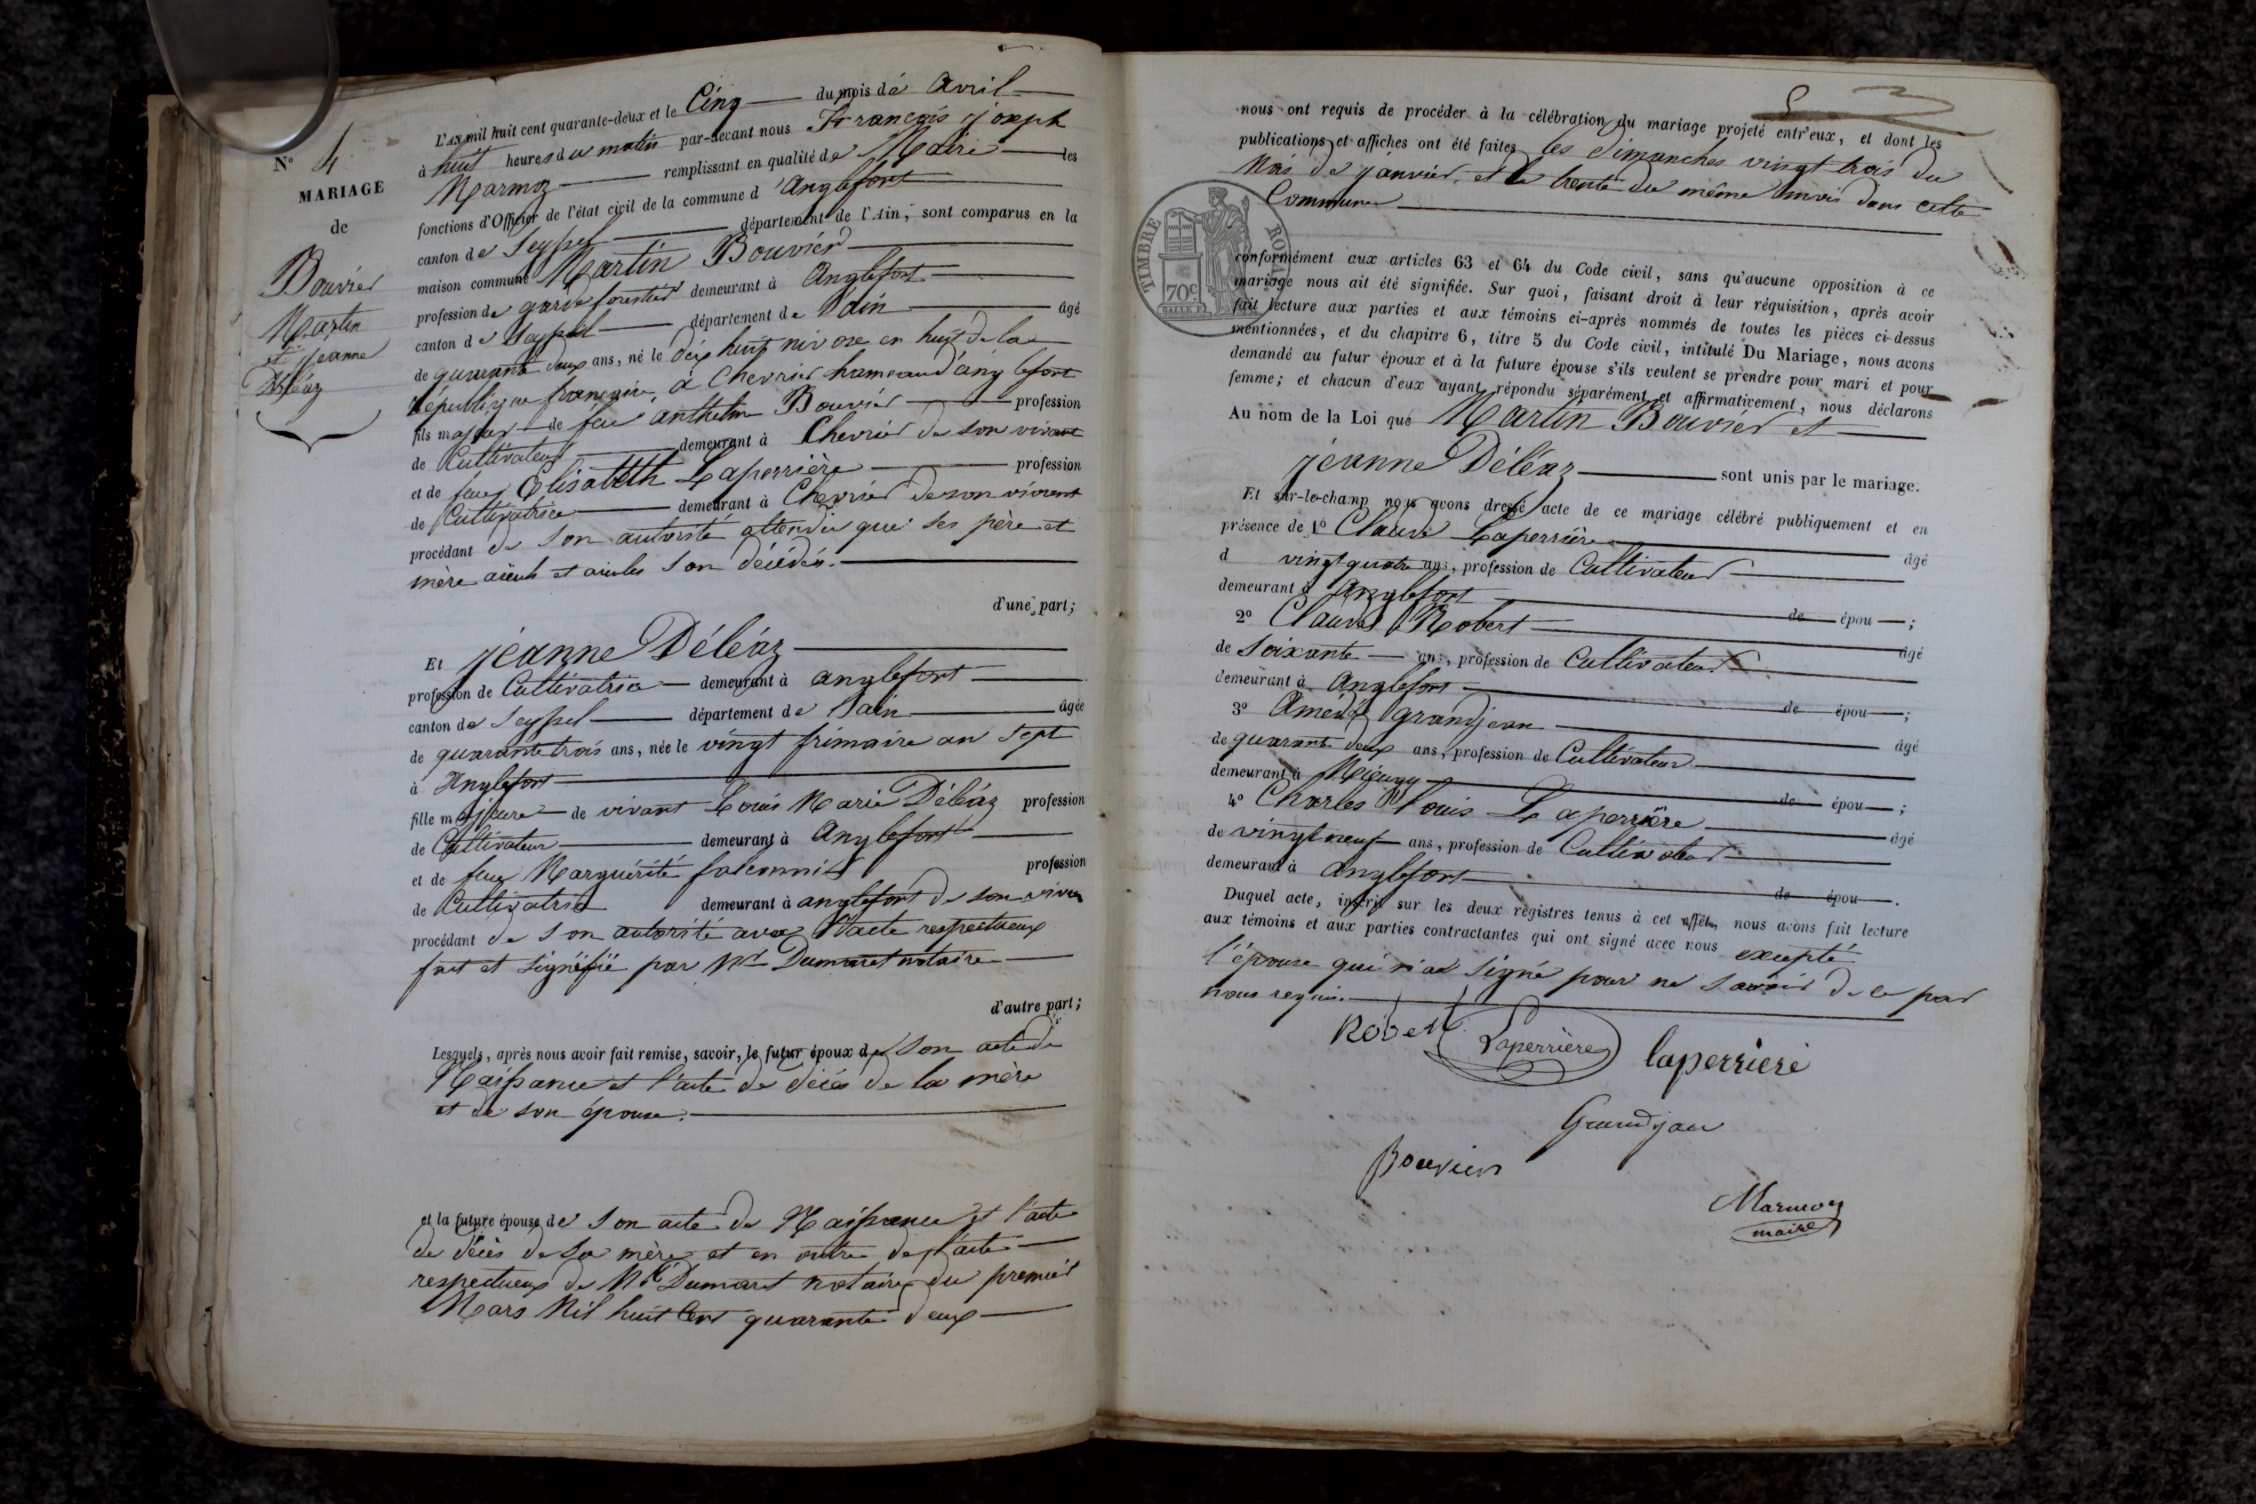 N° 4
MARIAGE
de
Bouvier
Martin
et jeanne
Déléaz
L'AN mil huit cent quarante-deux et le Cinq du mois de avril
à huit heures du matin par-devant nous François joseph
Marmoz remplissant en qualité de Maire les
fonctions d'Officier de l'état civil de la commune d'Anglefort
canton de Seyssel département de l'Ain, sont comparus en la
maison commune Martin Bouvier
profession de garde forestier demeurant à Anglefort
canton de Seyssel département de l'ain âgé
de quarante deux ans, né le dix huit nivose an huit de la
République française, à Chevrier hameau d'anglefort
fils majeur de feu anthelme Bouvier profession
de Cultivateur demeurant à Chevrier de son vivant
et de feue Elisabeth Laperrière profession
de Cultivatrice demeurant à Chevrier de son vivant
procédant de son autorité attendu que ses père et
mère aïeuls et aieules son décédés.
d'une part;
Et jeanne Déléaz
profession de Cultivatrice demeurant à anglefort
canton de Seyssel département de l'ain âgée
de quarante trois ans, née le vingt frimaire an sept
à Anglefort
fille majeure de vivant Louis Marie Déléaz profession
de Cultivateur demeurant à Anglefort
et de feue Marguérité falconnier profession
de Cultivatrice demeurant à anglefort de son vivan
procédant de son autorité avec l'acte respectueux
fait et signéfié par Me Dumaret notaire
d'autre part;
Lesquels, après nous avoir fait remise, savoir, le futur époux de son acte de
Naissance et l'acte de décés de la mère
et de son épouse.
et la future épouse de son acte de Naissance et l'acte
de décès de sa mère et en outre de l'acte
respectueux de Me Dumaret notaire du premier
Mars Mil huit Cent quarante deux
nous ont requis de procéder à la célébration du mariage projeté entr'eux, et dont les
publications et affiches ont été faites les dimanches vingt trois du
Mois de janvier, et le trente du même mois dans cette
Commune
TIMBRE ROYAL
70c
conformément aux articles 63 et 64 du Code civil, sans qu'aucune opposition à ce
mariage nous ait été signifiée. Sur quoi, faisant droit à leur réquisition, après avoir
fait lecture aux parties et aux témoins ci-après nommés de toutes les pièces ci-dessus
mentionnées, et du chapitre 6, titre 5 du Code civil, intitulé Du Mariage, nous avons
demandé au futur époux et à la future épouse s'ils veulent se prendre pour mari et pour
femme; et chacun d'eux ayant répondu séparément et affirmativement, nous déclarons
Au nom de la Loi que Martin Bouvier et
jéanne Déléaz sont unis par le mariage.
Et sur-le-champ nous avons dressé acte de ce mariage célébré publiquement et en
présence de 1° Claude Laperrière âgé
d vingt quatre ans, profession de Cultivateur
demeurant à Anglefort de épou ;
2° Claude Robert âgé
de Soixante ans, profession de Cultivateur
demeurant à Anglefort de épou ;
3° Amédé grandjean âgé
de quarante deux ans, profession de Cultivateur
demeurant à Mieugy de épou ;
4° Charles Louis Laperrière âgé
de vingt neuf ans, profession de Cultivateur
demeurant à Anglefort de épou .
Duquel acte, inscrit sur les deux registres tenus à cet effet, nous avons fait lecture
aux témoins et aux parties contractantes qui ont signé avec nous excepté
l'épouse qui n'a signé pour ne savoir de ce par
nous requise.
Robert Laperrière laperriere
Grandjean
Bouvier
Marmoz
maire